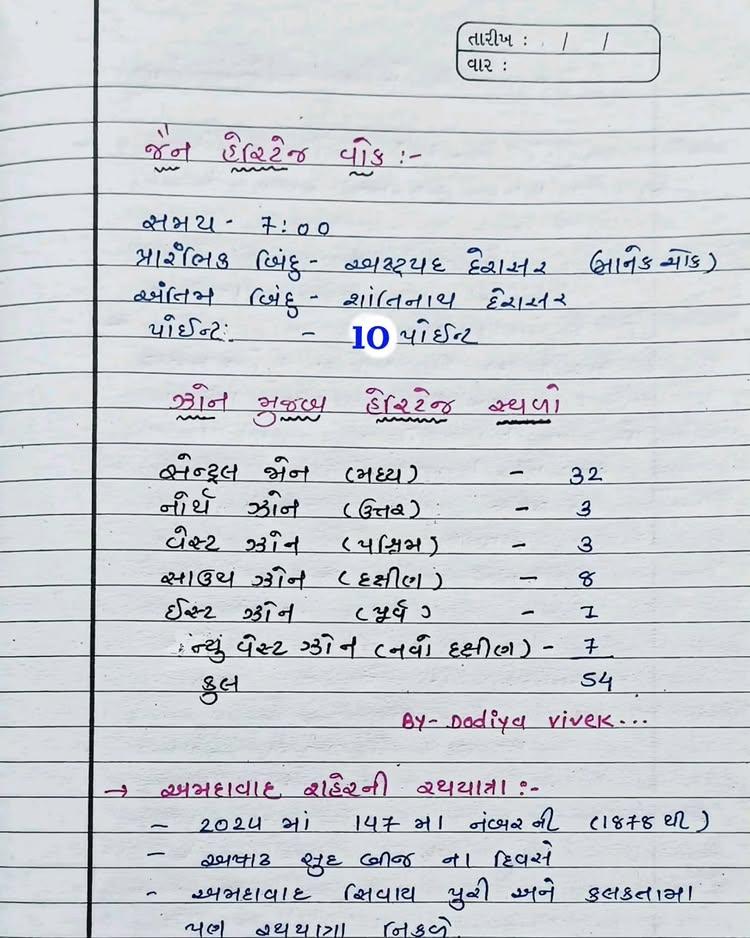 તારીખ : / /
વાર :
જૈન હેરિટેજ વોક :-
સમય - 7:00
પ્રારંભિક બિંદુ - અષ્ટપદ દેરાસર (માનેક ચોક)
અંતિમ બિંદુ - શાંતિનાથ દેરાસર
પોઈન્ટ: - 10 પોઈન્ટ
ઝોન મુજબ હેરિટેજ સ્થળો
સેન્ટ્રલ ઝોન (મધ્ય) - 32
નોર્થ ઝોન (ઉત્તર) - 3
વેસ્ટ ઝોન (પશ્ચિમ) - 3
સાઉથ ઝોન (દક્ષીણ) - 8
ઈસ્ટ ઝોન (પૂર્વ) - 1
ન્યું વેસ્ટ ઝોન (નવો દક્ષીણ) - 7
કુલ 54
By- Dodiya vivek...
→ અમદાવાદ શહેરની રથયાત્રા :-
- 2024 માં 147 મા નંબરની (1878 થી)
- અષાઢ સુદ બીજ ના દિવસે
- અમદાવાદ સિવાય પુરી અને કલકતામા
પણ રથયાત્રા નિકળે